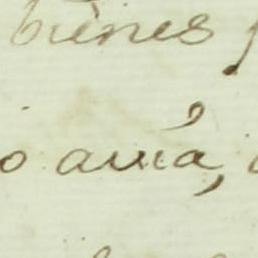 bienes
o auia,